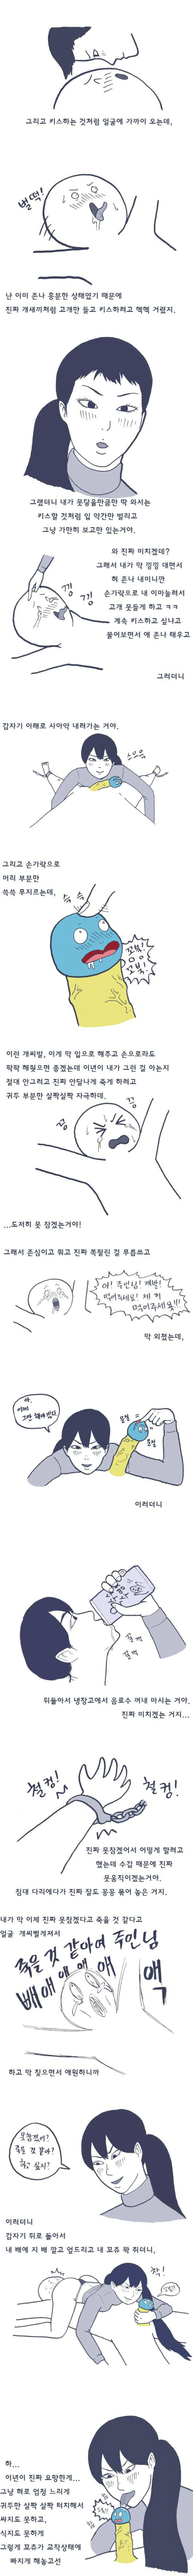 그리고 키스하는 것처럼 얼굴에 가까이 오는데,
벌떡!
난 이미 존나 흥분한 상태였기 때문에
진짜 개새끼처럼 고개만 들고 키스하려고 헥헥 거렸지.
그랬더니 내가 못닿을만큼만 딱 와서는
키스할 것처럼 입 약간만 벌리고
그냥 가만히 보고만 있는거야.
와 진짜 미치겠데?
그래서 내가 막 낑낑 대면서
혀 존나 내미니깐
손가락으로 내 이마눌러서
고개 못들게 하고 ㅋㅋ
계속 키스하고 싶냐고
물어보면서 애 존나 태우고
낑
낑
그러더니
갑자기 아래로 사아악 내려가는 거야.
스으윽
그리고 손가락으로
머리 부분만
쓱쓱 문지르는데,
슥 슥
이런 개씨발, 이게 막 입으로 해주고 손으로라도
팍팍 해줬으면 좋겠는데 이년이 내가 그런 걸 아는지
절대 안그러고 진짜 안달나게 죽게 하려고
귀두 부분만 살짝살짝 자극하데.
끙
끙
...도저히 못 참겠는거야!
그래서 존심이고 뭐고 진짜 쪽팔린 걸 무릅쓰고
아! 주인님! 제발!
먹어주세요! 제 거
먹어주세욧!!!
막 외쳤는데,
이러더니
뒤돌아서 냉장고에서 음료수 꺼내 마시는 거야.
진짜 미치겠는 거지...
철컹!
철컹!
진짜 못참겠어서 어떻게 할려고
했는데 수갑 때문에 진짜
못움직이겠는거야.
침대 다리에다가 진짜 잘도 꽁꽁 묶어 놓은 거지.
내가 막 이제 진짜 못참겠다고 죽을 것 같다고
얼굴 개씨벌게져서
죽을 것 같아여 주인님
빼애애애애
액
하고 막 짖으면서 애원하니까
못참겠어?
죽을 것 같아?
하고 싶지?
이러더니
갑자기 뒤로 돌아서
내 배에 지 배 깔고 엎드리고 내 꼬츄 꽉 쥐더니,
꽉!
하...
이년이 진짜 요망한게...
그냥 혀로 엄청 느리게
귀두만 살짝 살짝 터치해서
싸지도 못하고,
식지도 못하게
그렇게 꼬츄가 교착상태에
빠지게 해놓고선